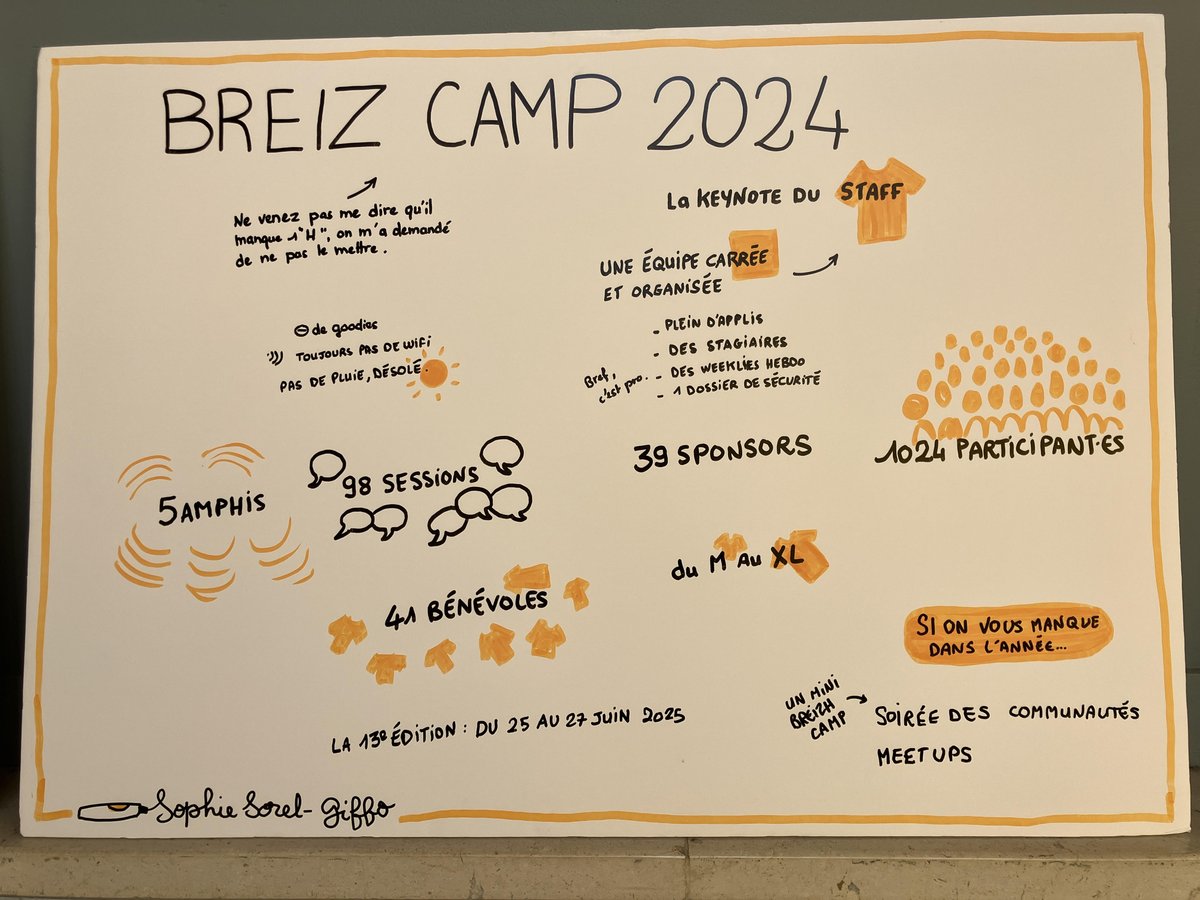 BREIZ CAMP 2024
Ne venez pas me dire qu'il
manque 1 "H", on m'a demandé
de ne pas le mettre.
La KEYNOTE DU STAFF
UNE ÉQUIPE CARRÉE
ET ORGANISÉE
- PLEIN D'APPLIS
- DES STAGIAIRES
- DES WEEKLIES HEBDO
- 1 DOSSIER DE SÉCURITÉ
Bref,
c'est pro.
de goodies
TOUJOURS PAS DE WIFI
PAS DE PLUIE, DÉSOLÉ.
5 AMPHIS
98 SESSIONS
39 SPONSORS
1024 PARTICIPANT·ES
41 BÉNÉVOLES
du M AU XL
SI ON VOUS MANQUE
DANS L'ANNÉE...
UN MINI
BREIZH
CAMP
SOIRÉE DES COMMUNAUTÉS
MEETUPS
LA 13e ÉDITION : DU 25 AU 27 JUIN 2025
Sophie Sorel-Giffo